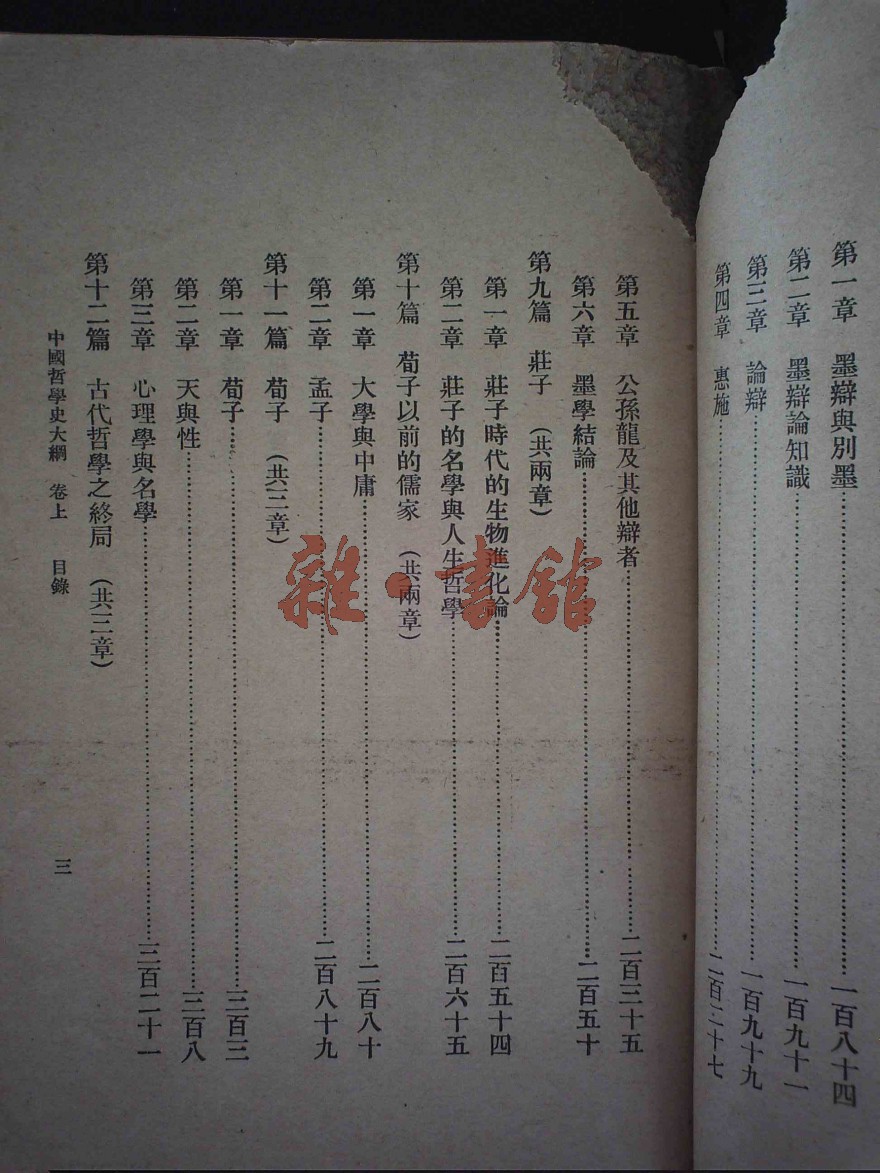 第一章　墨辯與別墨……一百八十四
第二章　墨辯論知識……一百九十一
第三章　論辯……一百九十九
第四章　惠施……二百二十七
第五章　公孫龍及其他辯者……二百三十五
第六章　墨學結論……二百五十
第九篇　莊子　（共兩章）
第一章　莊子時代的生物進化論……二百五十四
第二章　莊子的名學與人生哲學……二百六十五
第十篇　荀子以前的儒家　（共兩章）
第一章　大學與中庸……二百八十
第二章　孟子……二百八十九
第十一篇　荀子　（共三章）
第一章　荀子……三百三
第二章　天與性……三百八
第三章　心理學與名學……三百二十一
第十二篇　古代哲學之終局　（共三章）
中國哲學史大綱　卷上　目錄　三
雜·書館